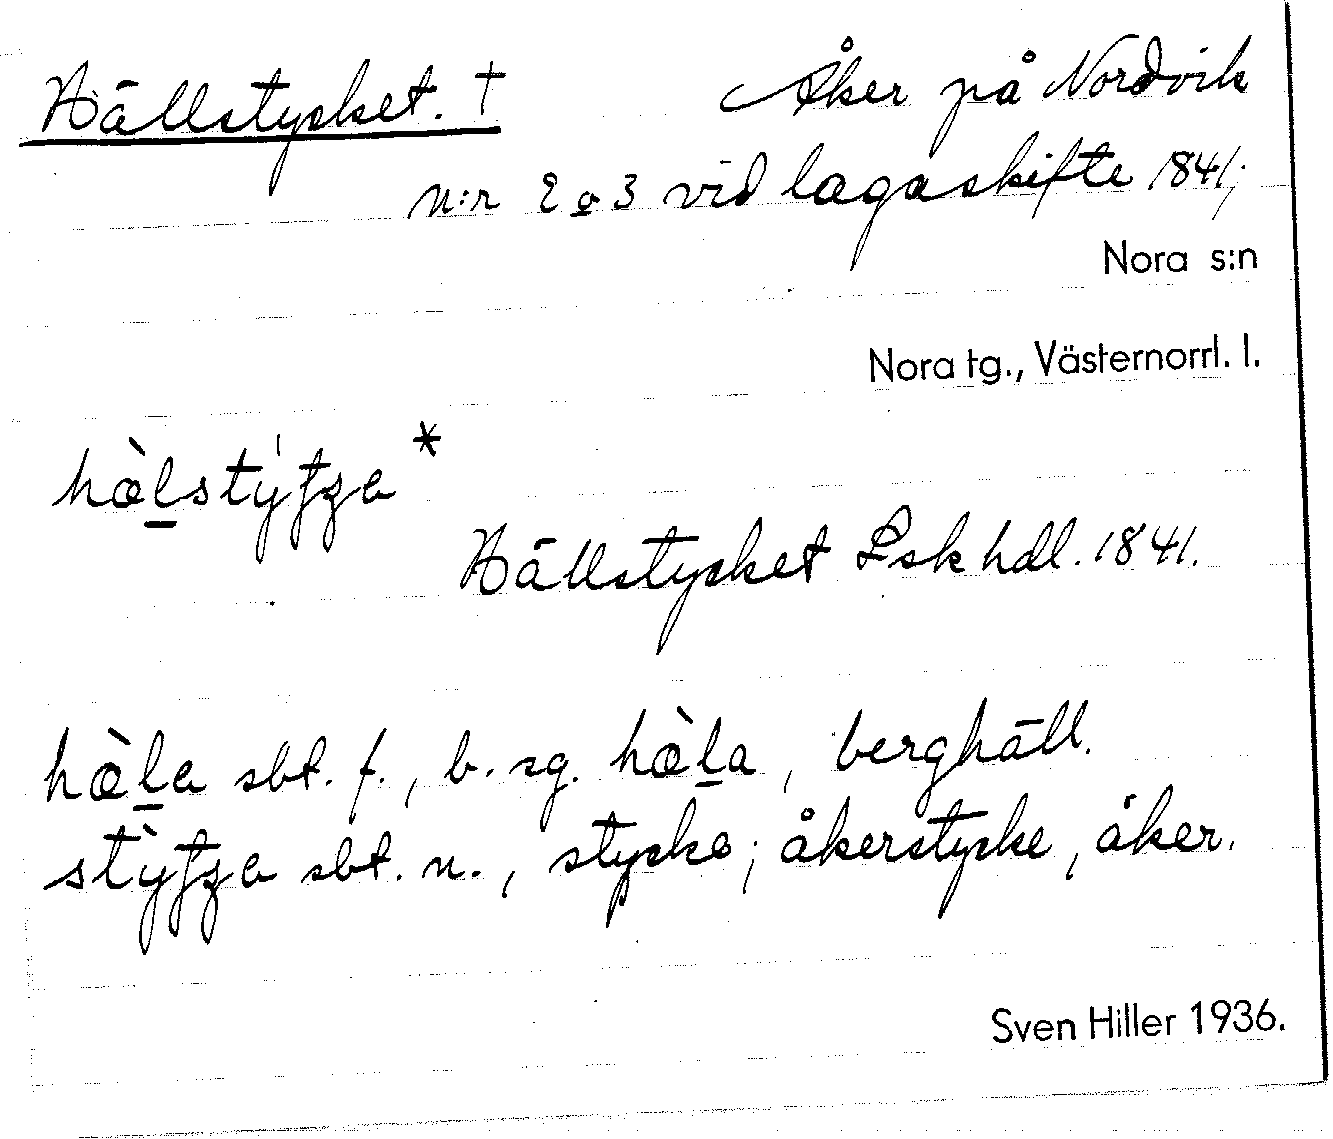 Hällstycket. † Åker på Nordvik
n:r 2 o 3 vid laga skifte 1841;
Nora s:n
Nora tg., Västernorrl. l.
hæ̀l̠stýt̡ʒa *
Hällstycket Lskhdl. 1841.
hæ̀l̠a sbt. f., b. sg. hæ̀l̠a, berghäll.
stỳt̡ʒa sbt. n., stycke; åkerstycke, åker.
Sven Hiller 1936.